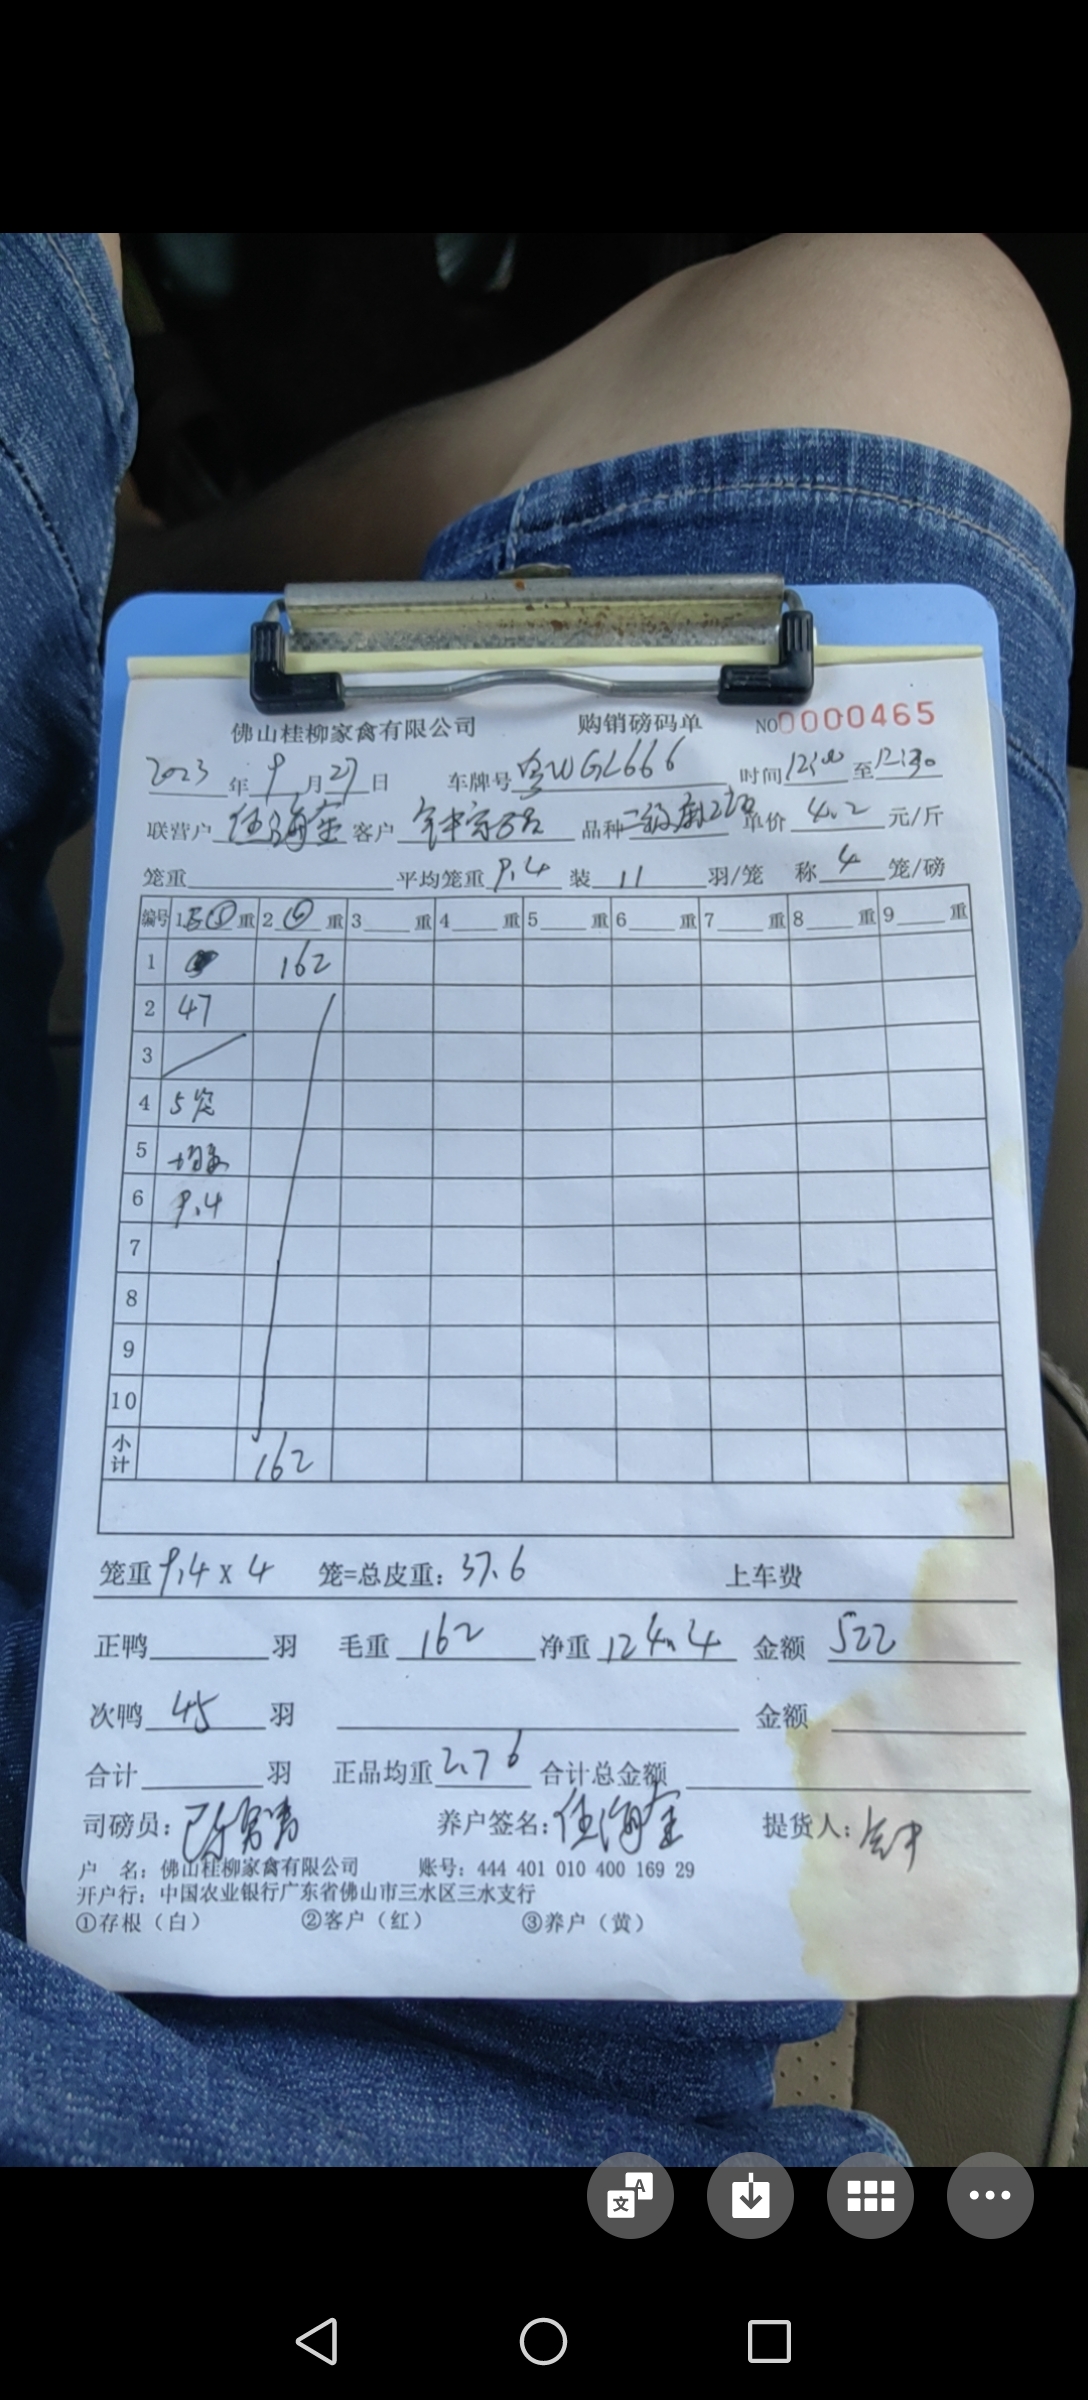 佛山桂柳家禽有限公司 购销磅码单 NO0000465
2023年9月27日 车牌号粤WGL666 时间12:00至12:30
联营户伍海金 客户 品种二级 单价4.2元/斤
笼重 平均笼重9.4 装11羽/笼 称4笼/磅
编号 1 重 2 重 3 重 4 重 5 重 6 重 7 重 8 重 9 重
1 162
2 47
3
4 5笼
5 均重
6 9.4
7
8
9
10
小计 162
笼重9.4x4 笼=总皮重：37.6 上车费
正鸭 羽 毛重162 净重124.4 金额522
次鸭45羽 金额
合计 羽 正品均重2.76 合计总金额
司磅员： 养户签名：伍海金 提货人：
户 名：佛山桂柳家禽有限公司 账号：444 401 010 400 169 29
开户行：中国农业银行广东省佛山市三水区三水支行
①存根（白） ②客户（红） ③养户（黄）